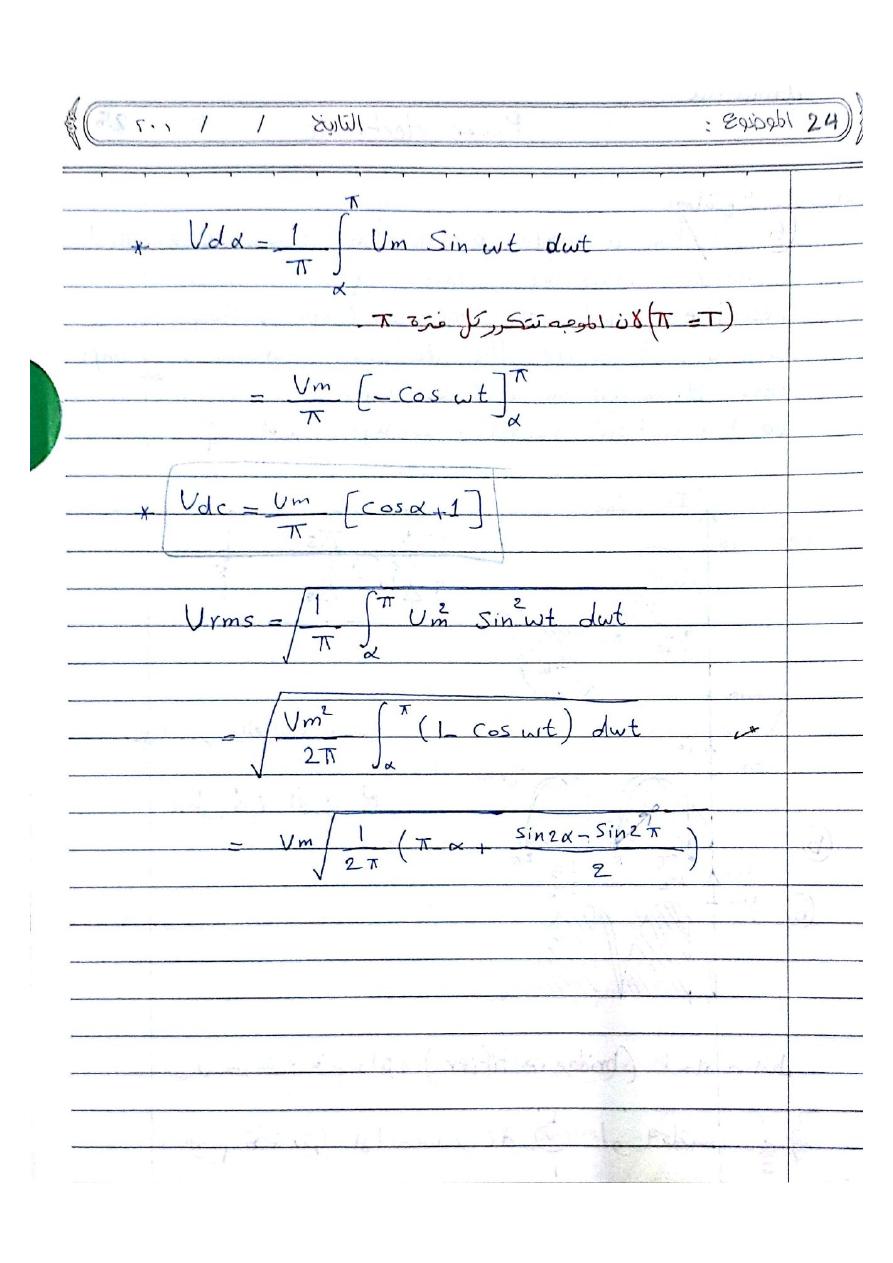 24 الموضوع : التاريخ / / ٢٠٠١
* Vdα = 1/π ∫_α^π Vm Sin wt dwt
(T = π) لان الموجه تتكرر كل فترة π .
= Vm/π [-Cos wt]_α^π
* Vdc = Vm/π [cosα+1]
Vrms = √(1/π ∫_α^π Vm² sin²wt dwt)
= √(Vm²/2π ∫_α^π (1- cos wt) dwt)
= Vm √(1/2π (π-α + (sin2α - Sin2π)/2))